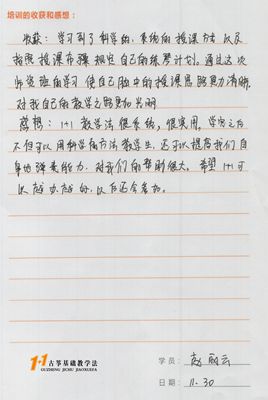 培训的收获和感想：
收获：学习到了科学的、系统的授课方法以及
按照授课步骤规定自己的练习计划。通过这次
师资班的学习使自己脑中的授课思路更加清晰
对我自己的教学之路更加光明
感想：1+1教学法很系统，很实用，学完之后
不但可以用科学的方法教学生，还可以提高我们自
身的弹奏能力，对我们的帮助很大。希望1+1可
以越办越好，以后还会参加。
1+1古筝基础教学法
GUZHENG JICHU JIAOXUEFA
学员：赵云
日期：11.30